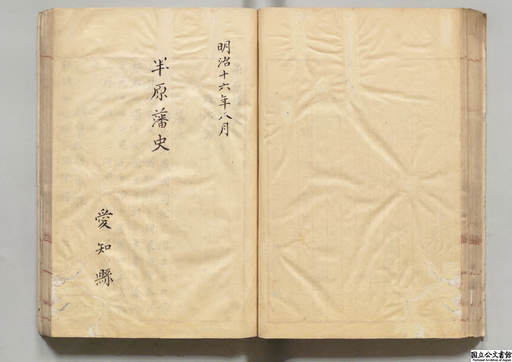 明治十六年八月
半原藩史
愛知縣
国立公文書館
National Archives of Japan